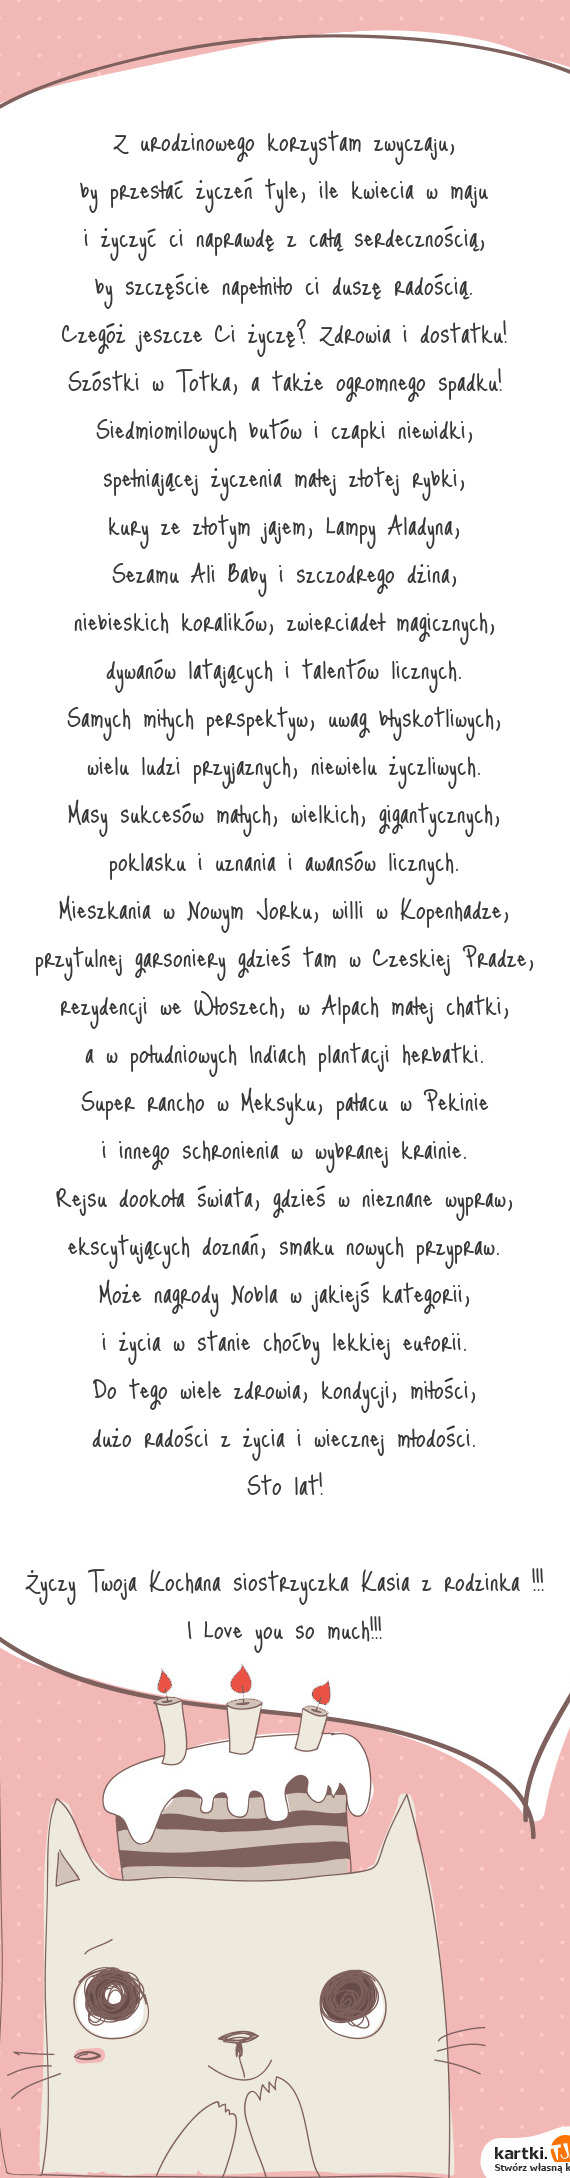 Z urodzinowego korzystam zwyczaju,
by przesłać życzeń tyle, ile kwiecia w maju
i życzyć ci naprawdę z całą serdecznością,
by szczęście napełniło ci duszę radością.
Czegóż jeszcze Ci życzę? Zdrowia i dostatku!
Szóstki w Totka, a także ogromnego spadku!
Siedmiomilowych butów i czapki niewidki,
spełniającej życzenia małej złotej rybki,
kury ze złotym jajem, Lampy Aladyna,
Sezamu Ali Baby i szczodrego dżina,
niebieskich koralików, zwierciadeł magicznych,
dywanów latających i talentów licznych.
Samych miłych perspektyw, uwag błyskotliwych,
wielu ludzi przyjaznych, niewielu życzliwych.
Masy sukcesów małych, wielkich, gigantycznych,
poklasku i uznania i awansów licznych.
Mieszkania w Nowym Jorku, willi w Kopenhadze,
przytulnej garsoniery gdzieś tam w Czeskiej Pradze,
rezydencji we Włoszech, w Alpach małej chatki,
a w południowych Indiach plantacji herbatki.
Super rancho w Meksyku, pałacu w Pekinie
i innego schronienia w wybranej krainie.
Rejsu dookoła świata, gdzieś w nieznane wypraw,
ekscytujących doznań, smaku nowych przypraw.
Może nagrody Nobla w jakiejś kategorii,
i życia w stanie choćby lekkiej euforii.
Do tego wiele zdrowia, kondycji, miłości,
dużo radości z życia i wiecznej młodości.
Sto lat!
Życzy Twoja Kochana siostrzyczka Kasia z rodzinka !!!
I Love you so much!!!
kartki.TJ
Stwórz własną k